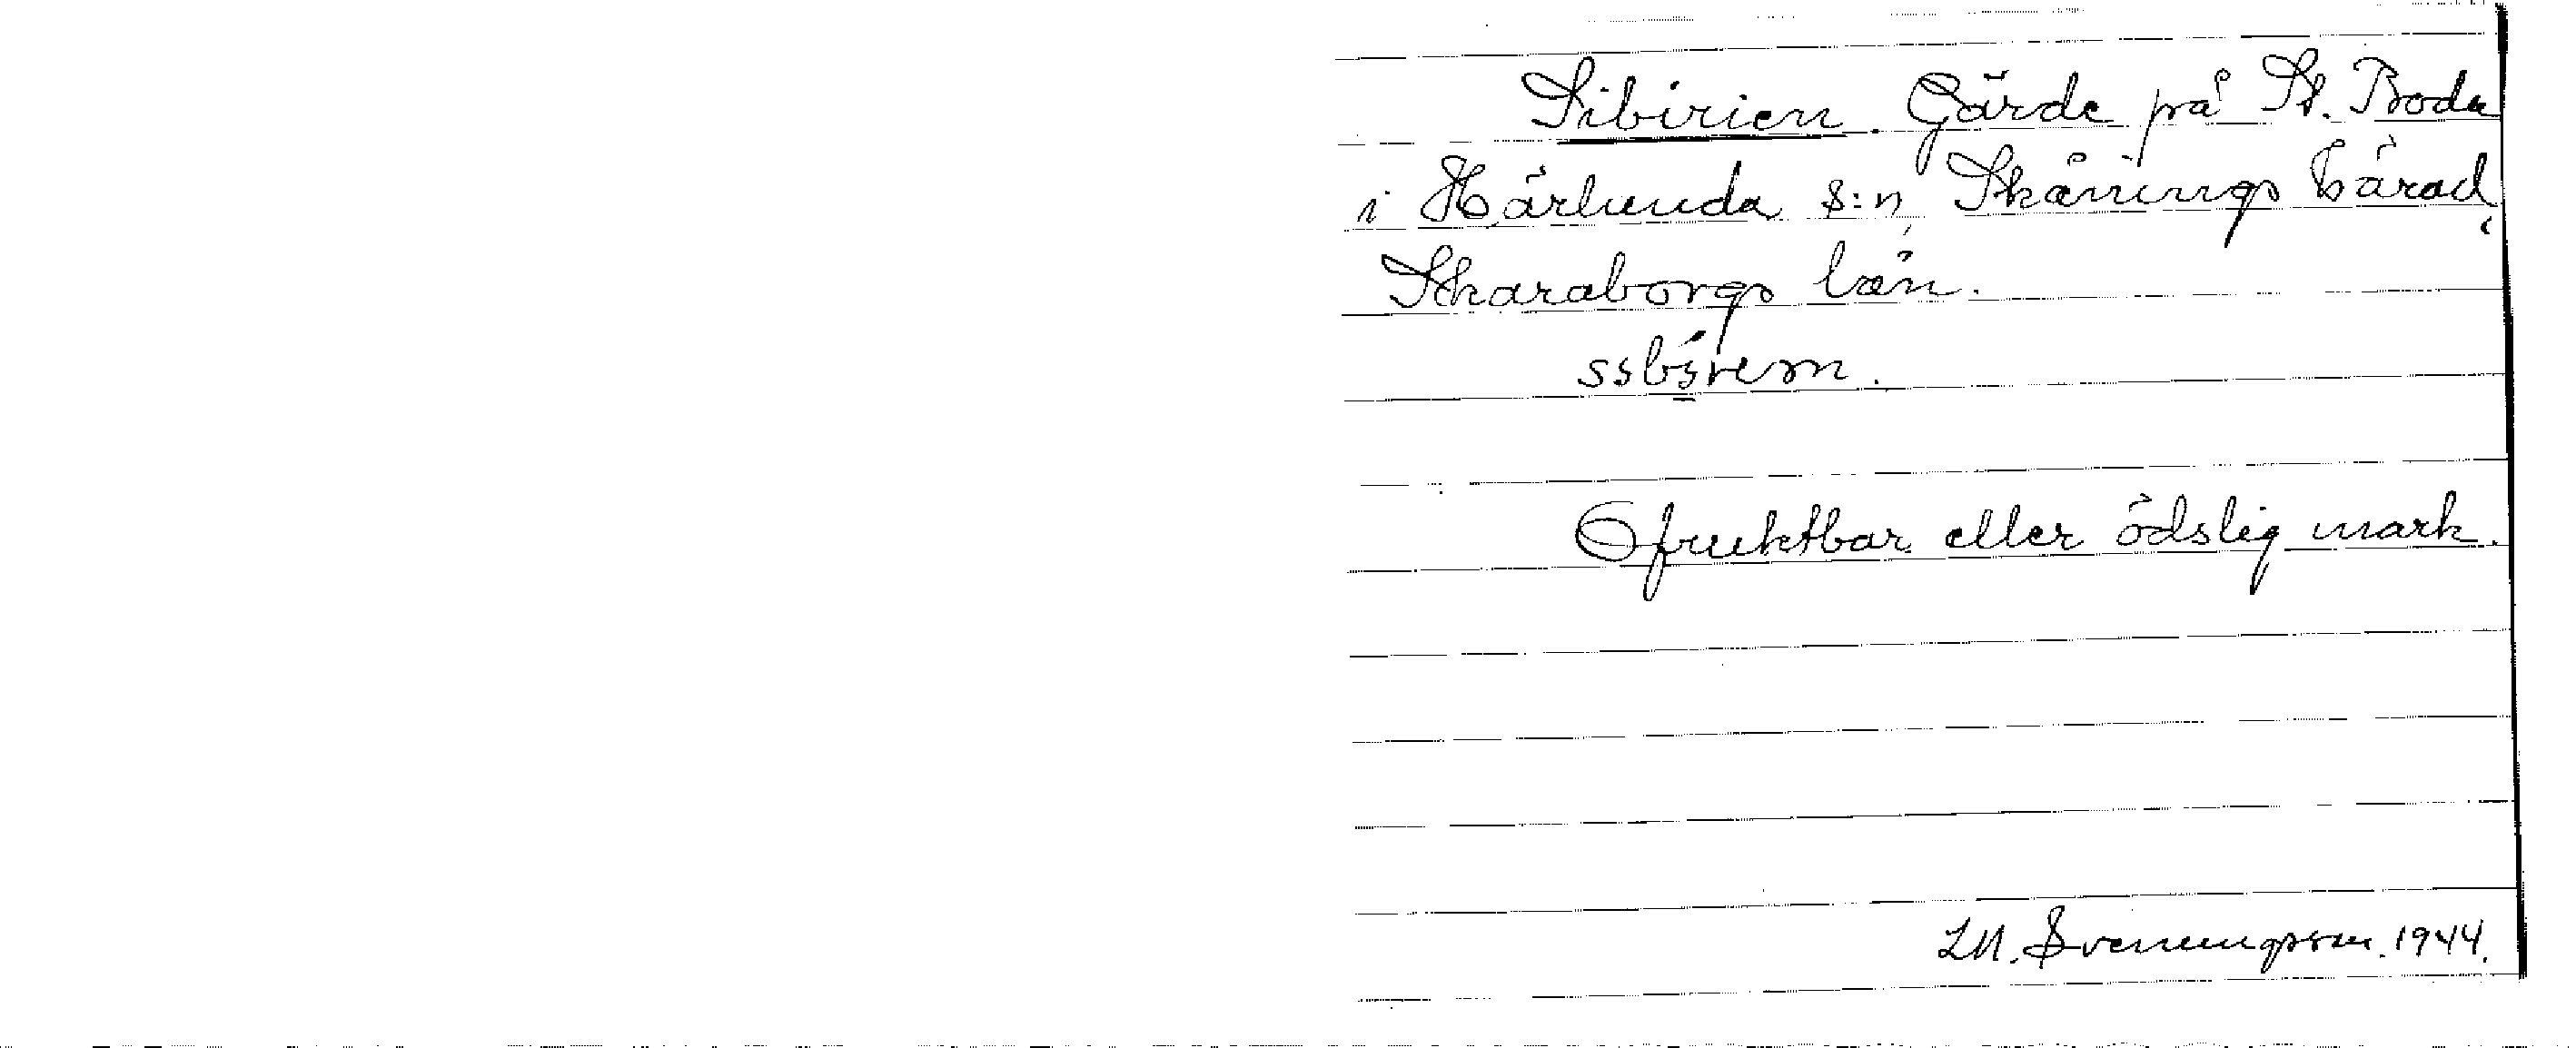 Sibirien. Gärde på St. Boda
i Härlunda s:n, Skånings härad,
Skaraborgs län.
Ofruktbar eller ödslig mark.
L.M. Svenungsson. 1944.